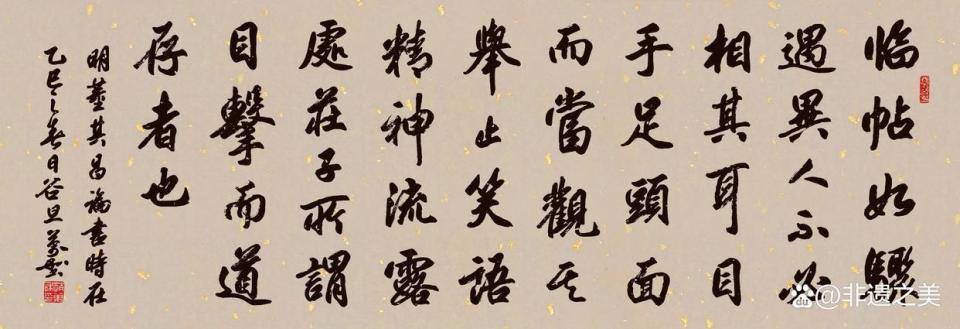 临帖如驟
遇異人不必
相其耳目
手足頭面
而當觀其
舉止笑語
精神流露
處莊子所謂
目擊而道
存者也
明董其昌論書時在
乙巳之春日谷旦
@非遗之美